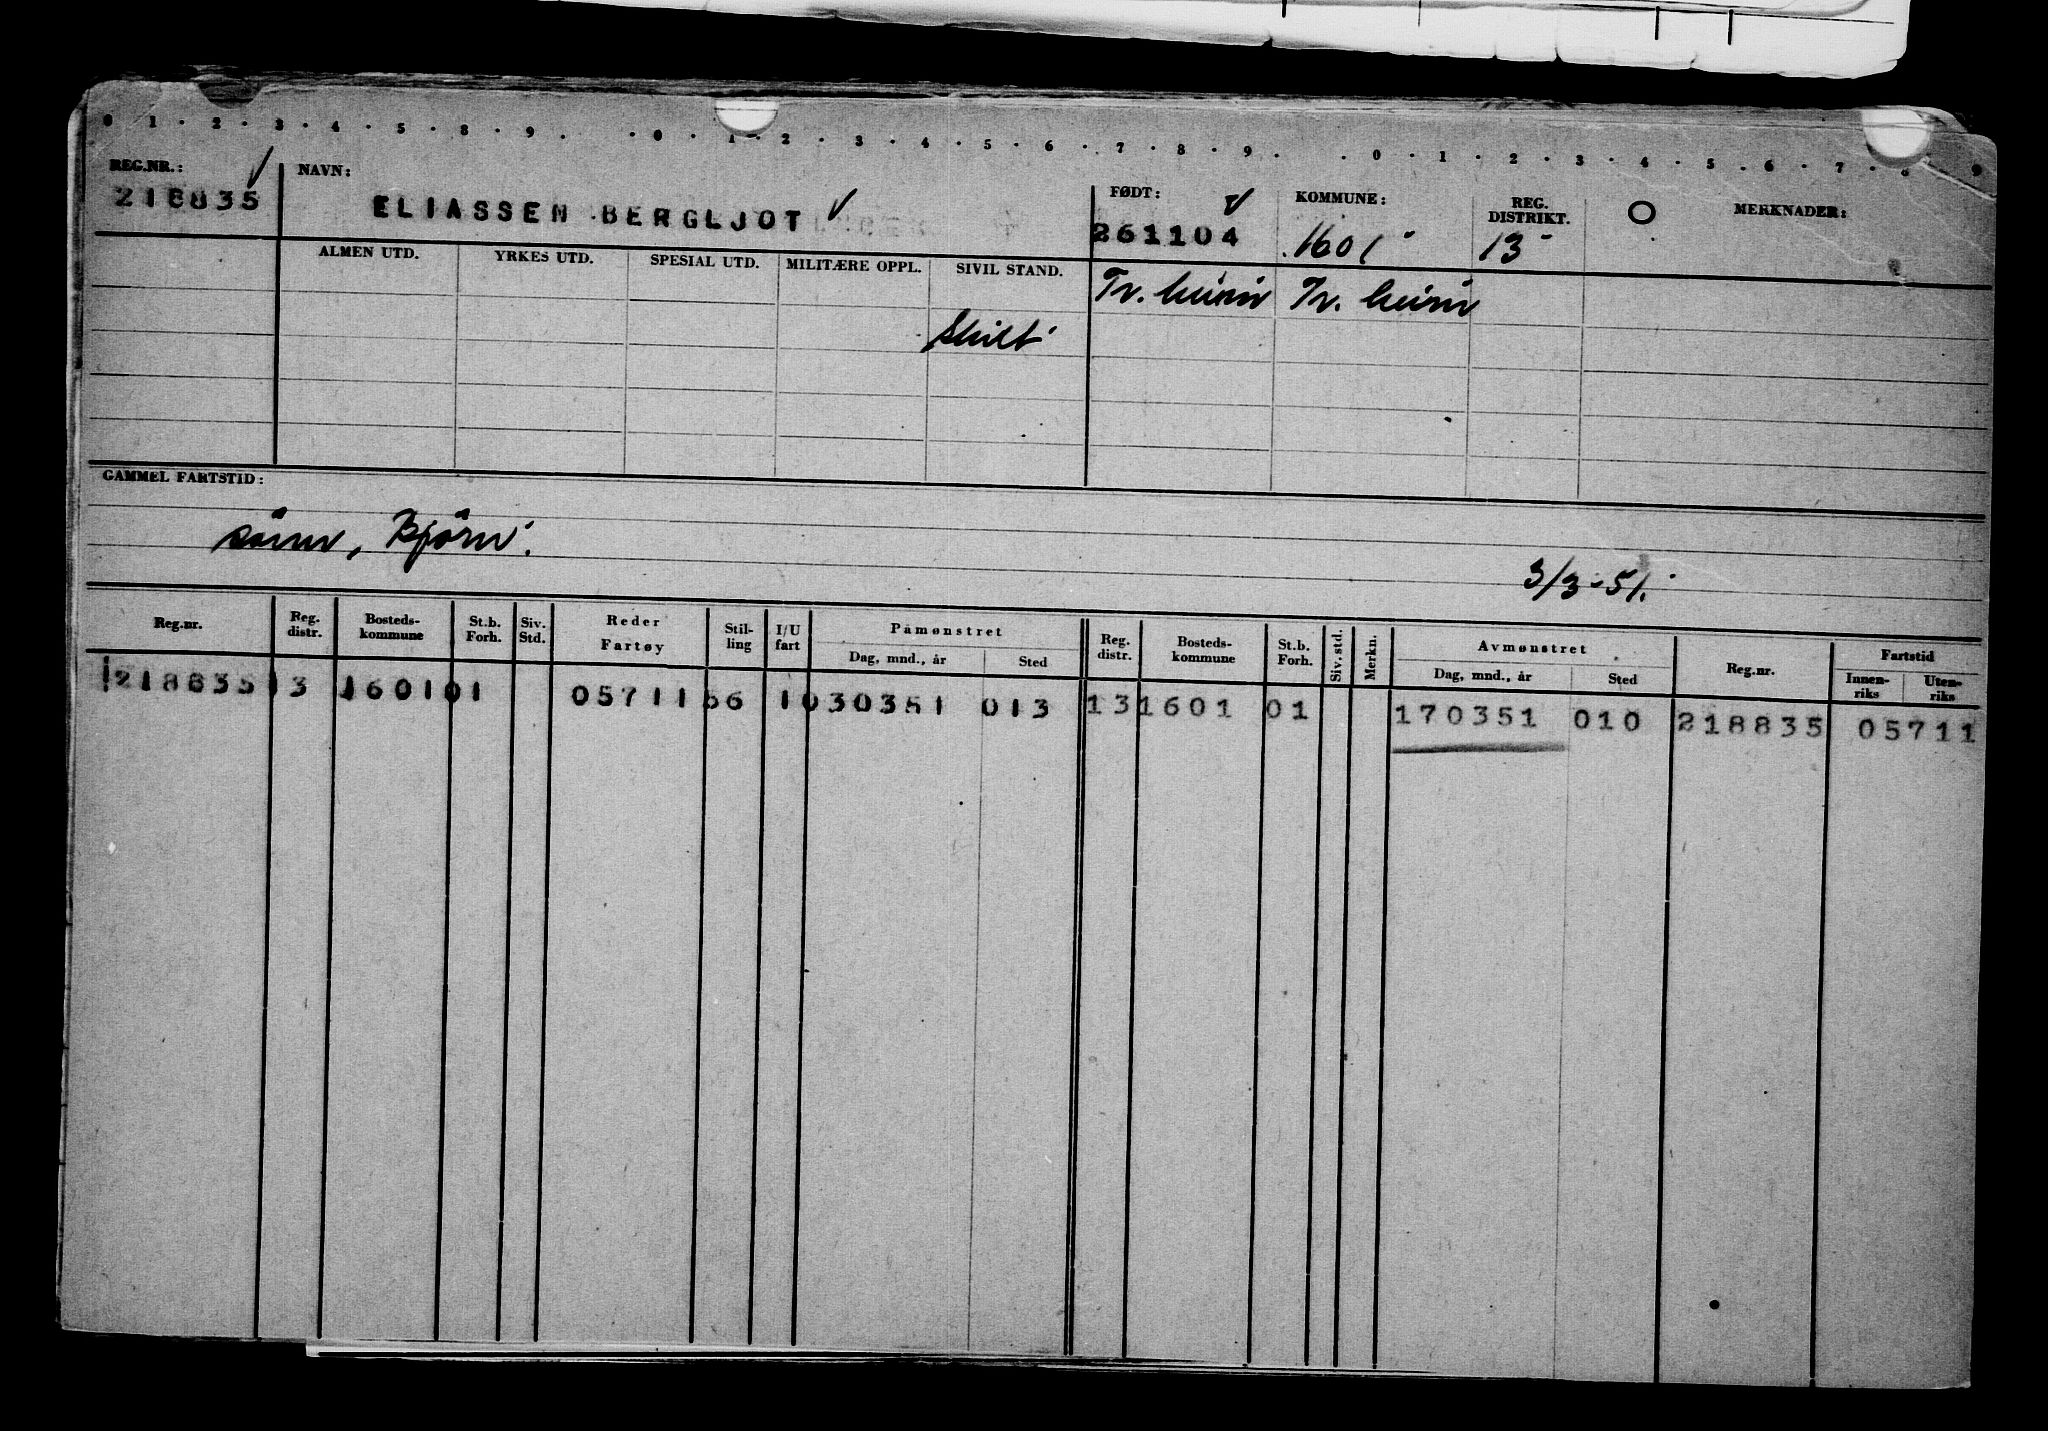 0 1 2 3 4 5 8 9 0 1 2 3 4 5 6 7 8 9 0 1 2 3 4 5 6 7 8 9
REG.NR.: NAVN: FØDT: KOMMUNE: REG. DISTRIKT. O MERKNADER:
218835 ELIASSEN BERGLJOT 261104 1601 13
ALMEN UTD. YRKES UTD. SPESIAL UTD. MILITÆRE OPPL. SIVIL STAND. Tr.heim Tr.heim
Skilt
GAMMEL FARTSTID:
sønn, Bjørn.
3/3-51.
Reg.nr. Reg. distr. Bosteds-kommune St.b. Forh. Siv. Std. Reder Fartøy Stil-ling I/U fart Påmønstret Dag, mnd., år Sted Reg. distr. Bosteds-kommune St.b. Forh. Siv. std. Merkn. Avmønstret Dag, mnd., år Sted Reg.nr. Fartstid Innen-riks Uten-riks
218835 13 1601 01 05711 56 10 30351 013 13 1601 01 170351 010 218835 05711